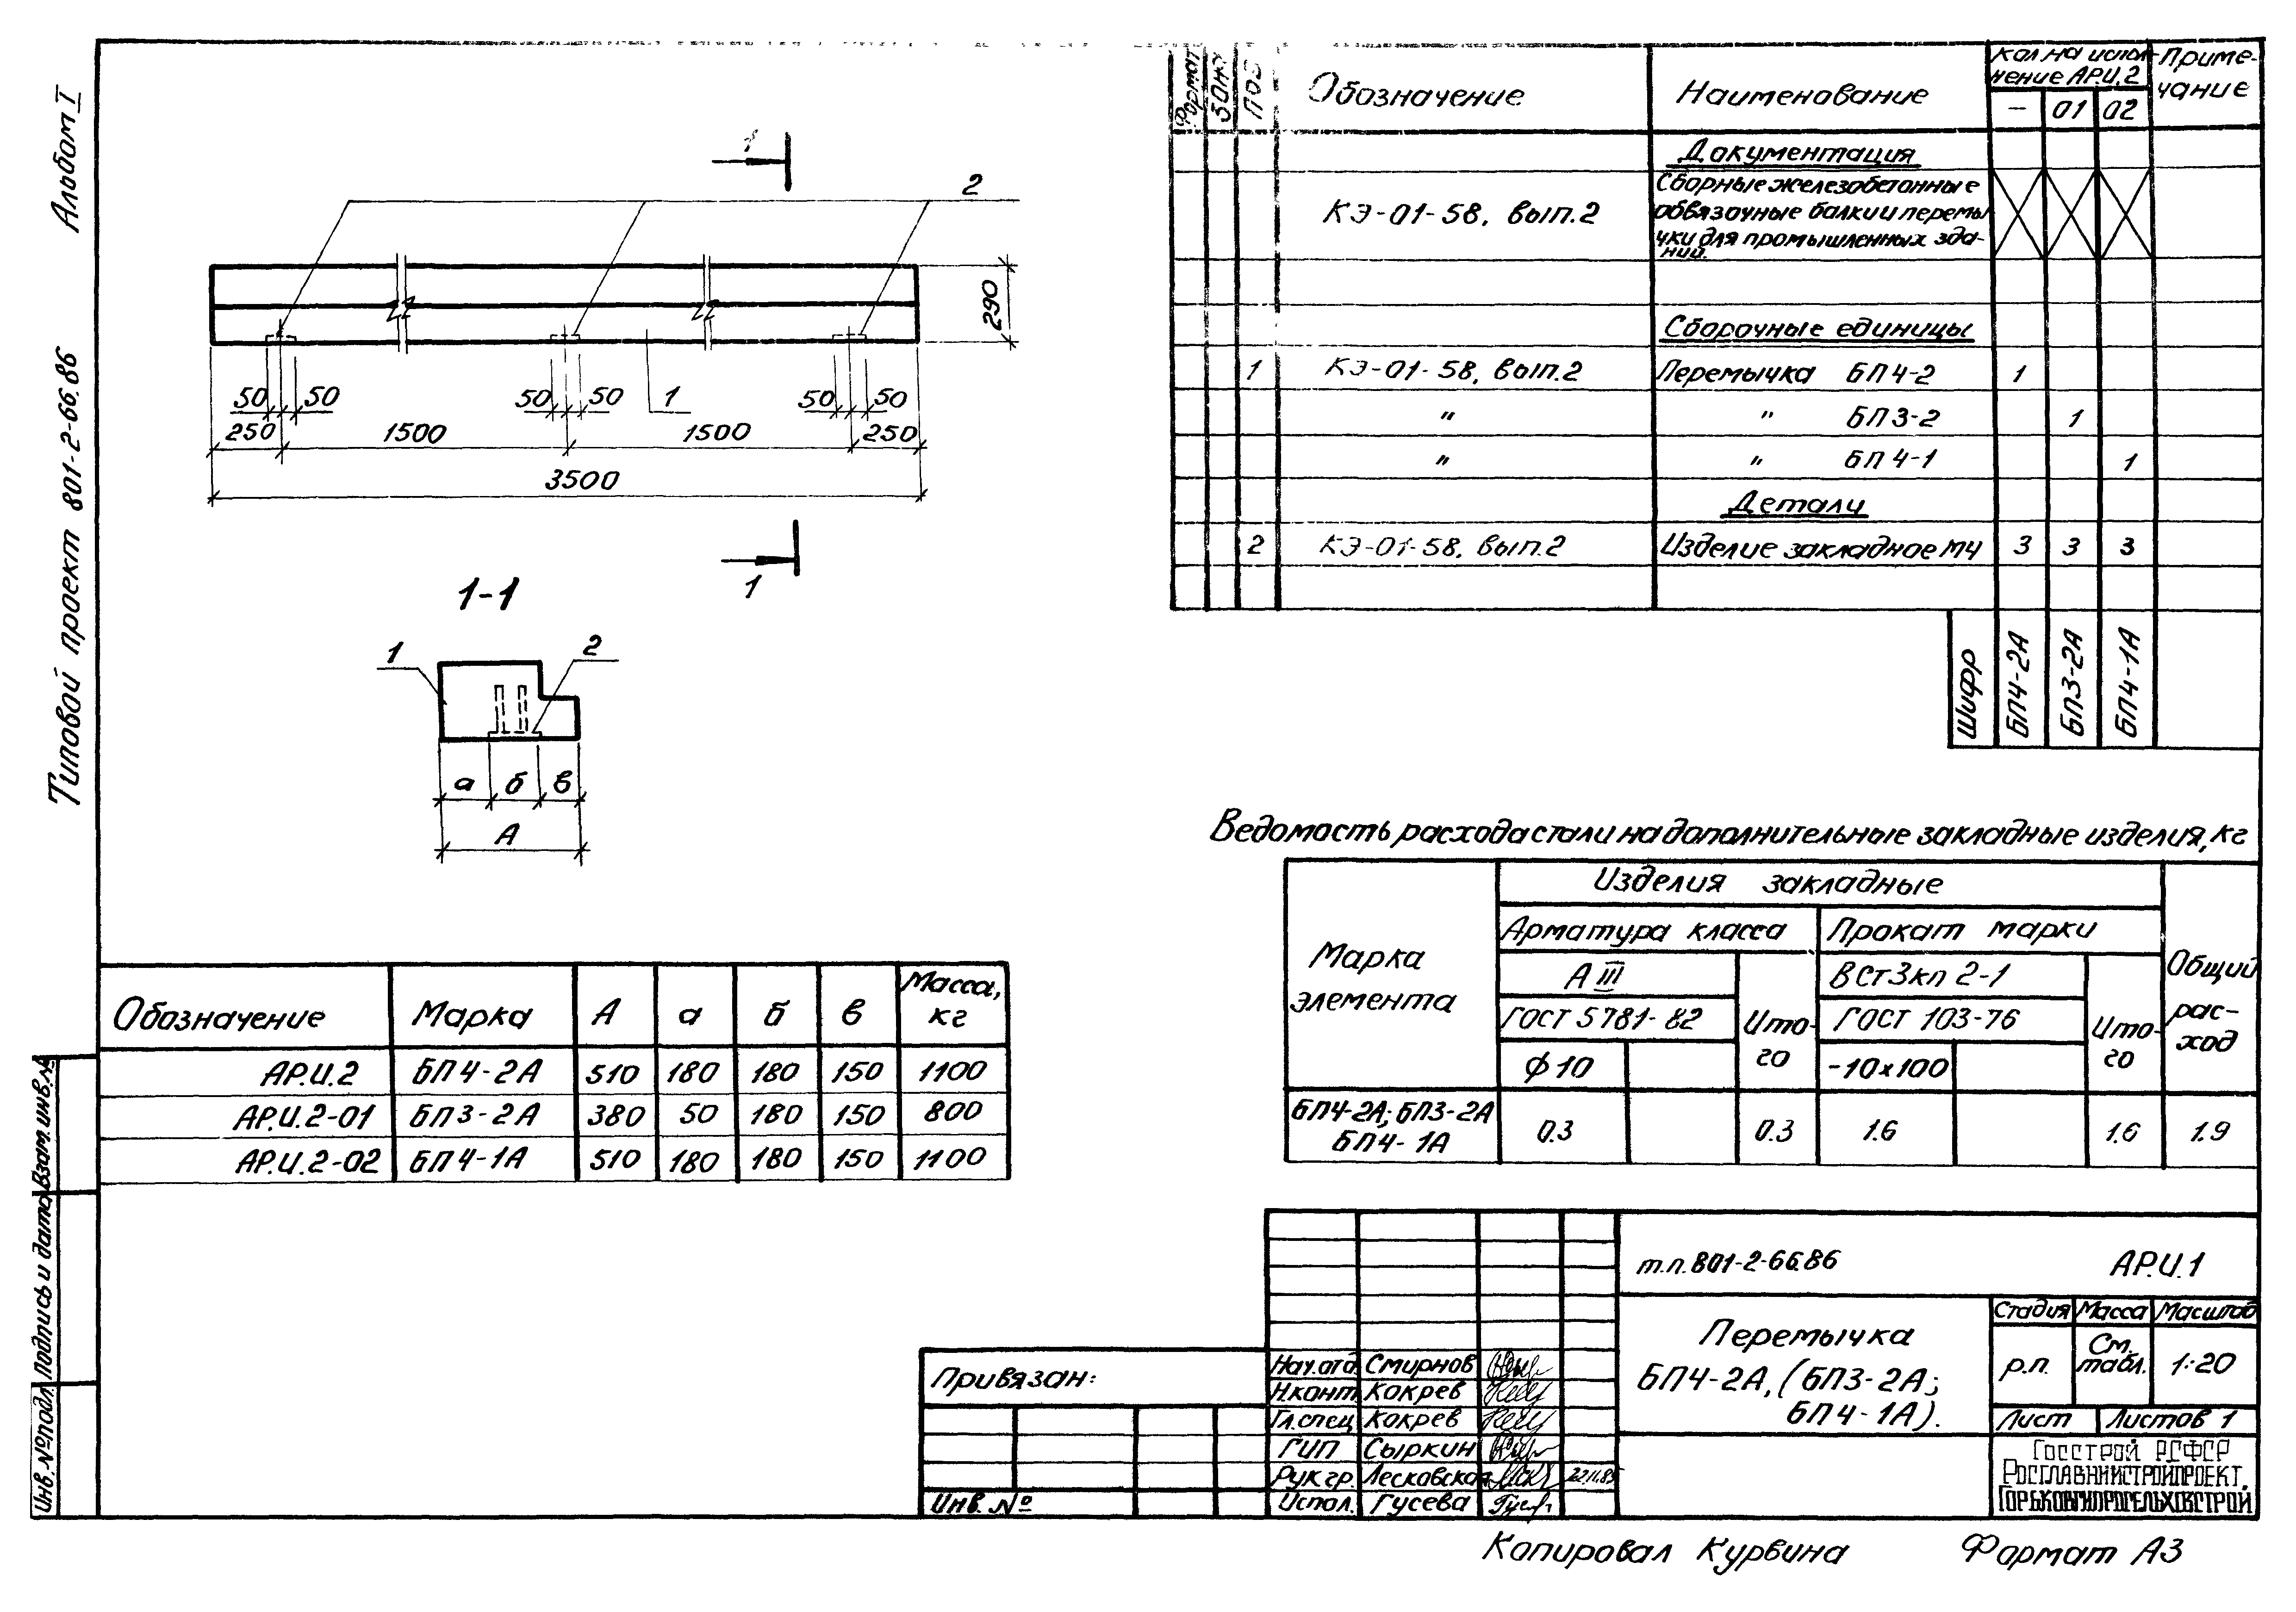 Альбом I
Типовой проект 801-2-66.86
1
2
290
50 50 50 50 1 50 50
250 1500 1500 250
3500
1
1-1
1 2
а б в
А
Формат Зона Поз Обозначение Наименование Кол. на испол- Приме-
нение АР.И.2 чание
— 01 02
Документация
КЭ-01-58, вып.2 Сборные железобетонные
обвязочные балки и перемы
чки для промышленных зда-
ний.
Сборочные единицы
1 КЭ-01-58, вып.2 Перемычка БП4-2 1
" " БП3-2 1
" " БП4-1 1
Детали
2 КЭ-01-58, вып.2 Изделие закладное М4 3 3 3
Шифр БП4-2А БП3-2А БП4-1А
Ведомость расхода стали на дополнительные закладные изделия, кг
Марка элемента Изделия закладные Общий рас-ход
Арматура класса Прокат марки
А III Ито-го ВСт3кп 2-1 Ито-го
ГОСТ 5781-82 ГОСТ 103-76
ϕ10 -10х100
БП4-2А; БП3-2А
БП4-1А 0.3 0.3 1.6 1.6 1.9
Обозначение Марка А а б в Масса, кг
АР.И.2 БП4-2А 510 180 180 150 1100
АР.И.2-01 БП3-2А 380 50 180 150 800
АР.И.2-02 БП4-1А 510 180 180 150 1100
Инв.№подл. Подпись и дата Взам.инв.№
т.п.801-2-66.86 АР.И.1
Перемычка
БП4-2А, (БП3-2А;
БП4-1А).
Стадия Масса Масштаб
р.п. См. табл. 1:20
Лист Листов 1
Госстрой РСФСР
Росглавниистройпроект,
Горьковгипросельхозстрой
Нач.отд. Смирнов
Н.конт. Кокрев
Гл.спец Кокрев
ГИП Сыркин
Рук.гр. Лесковская 22.11.85
Испол. Гусева
Привязан:
Инв. №
Копировал Курвина Формат А3